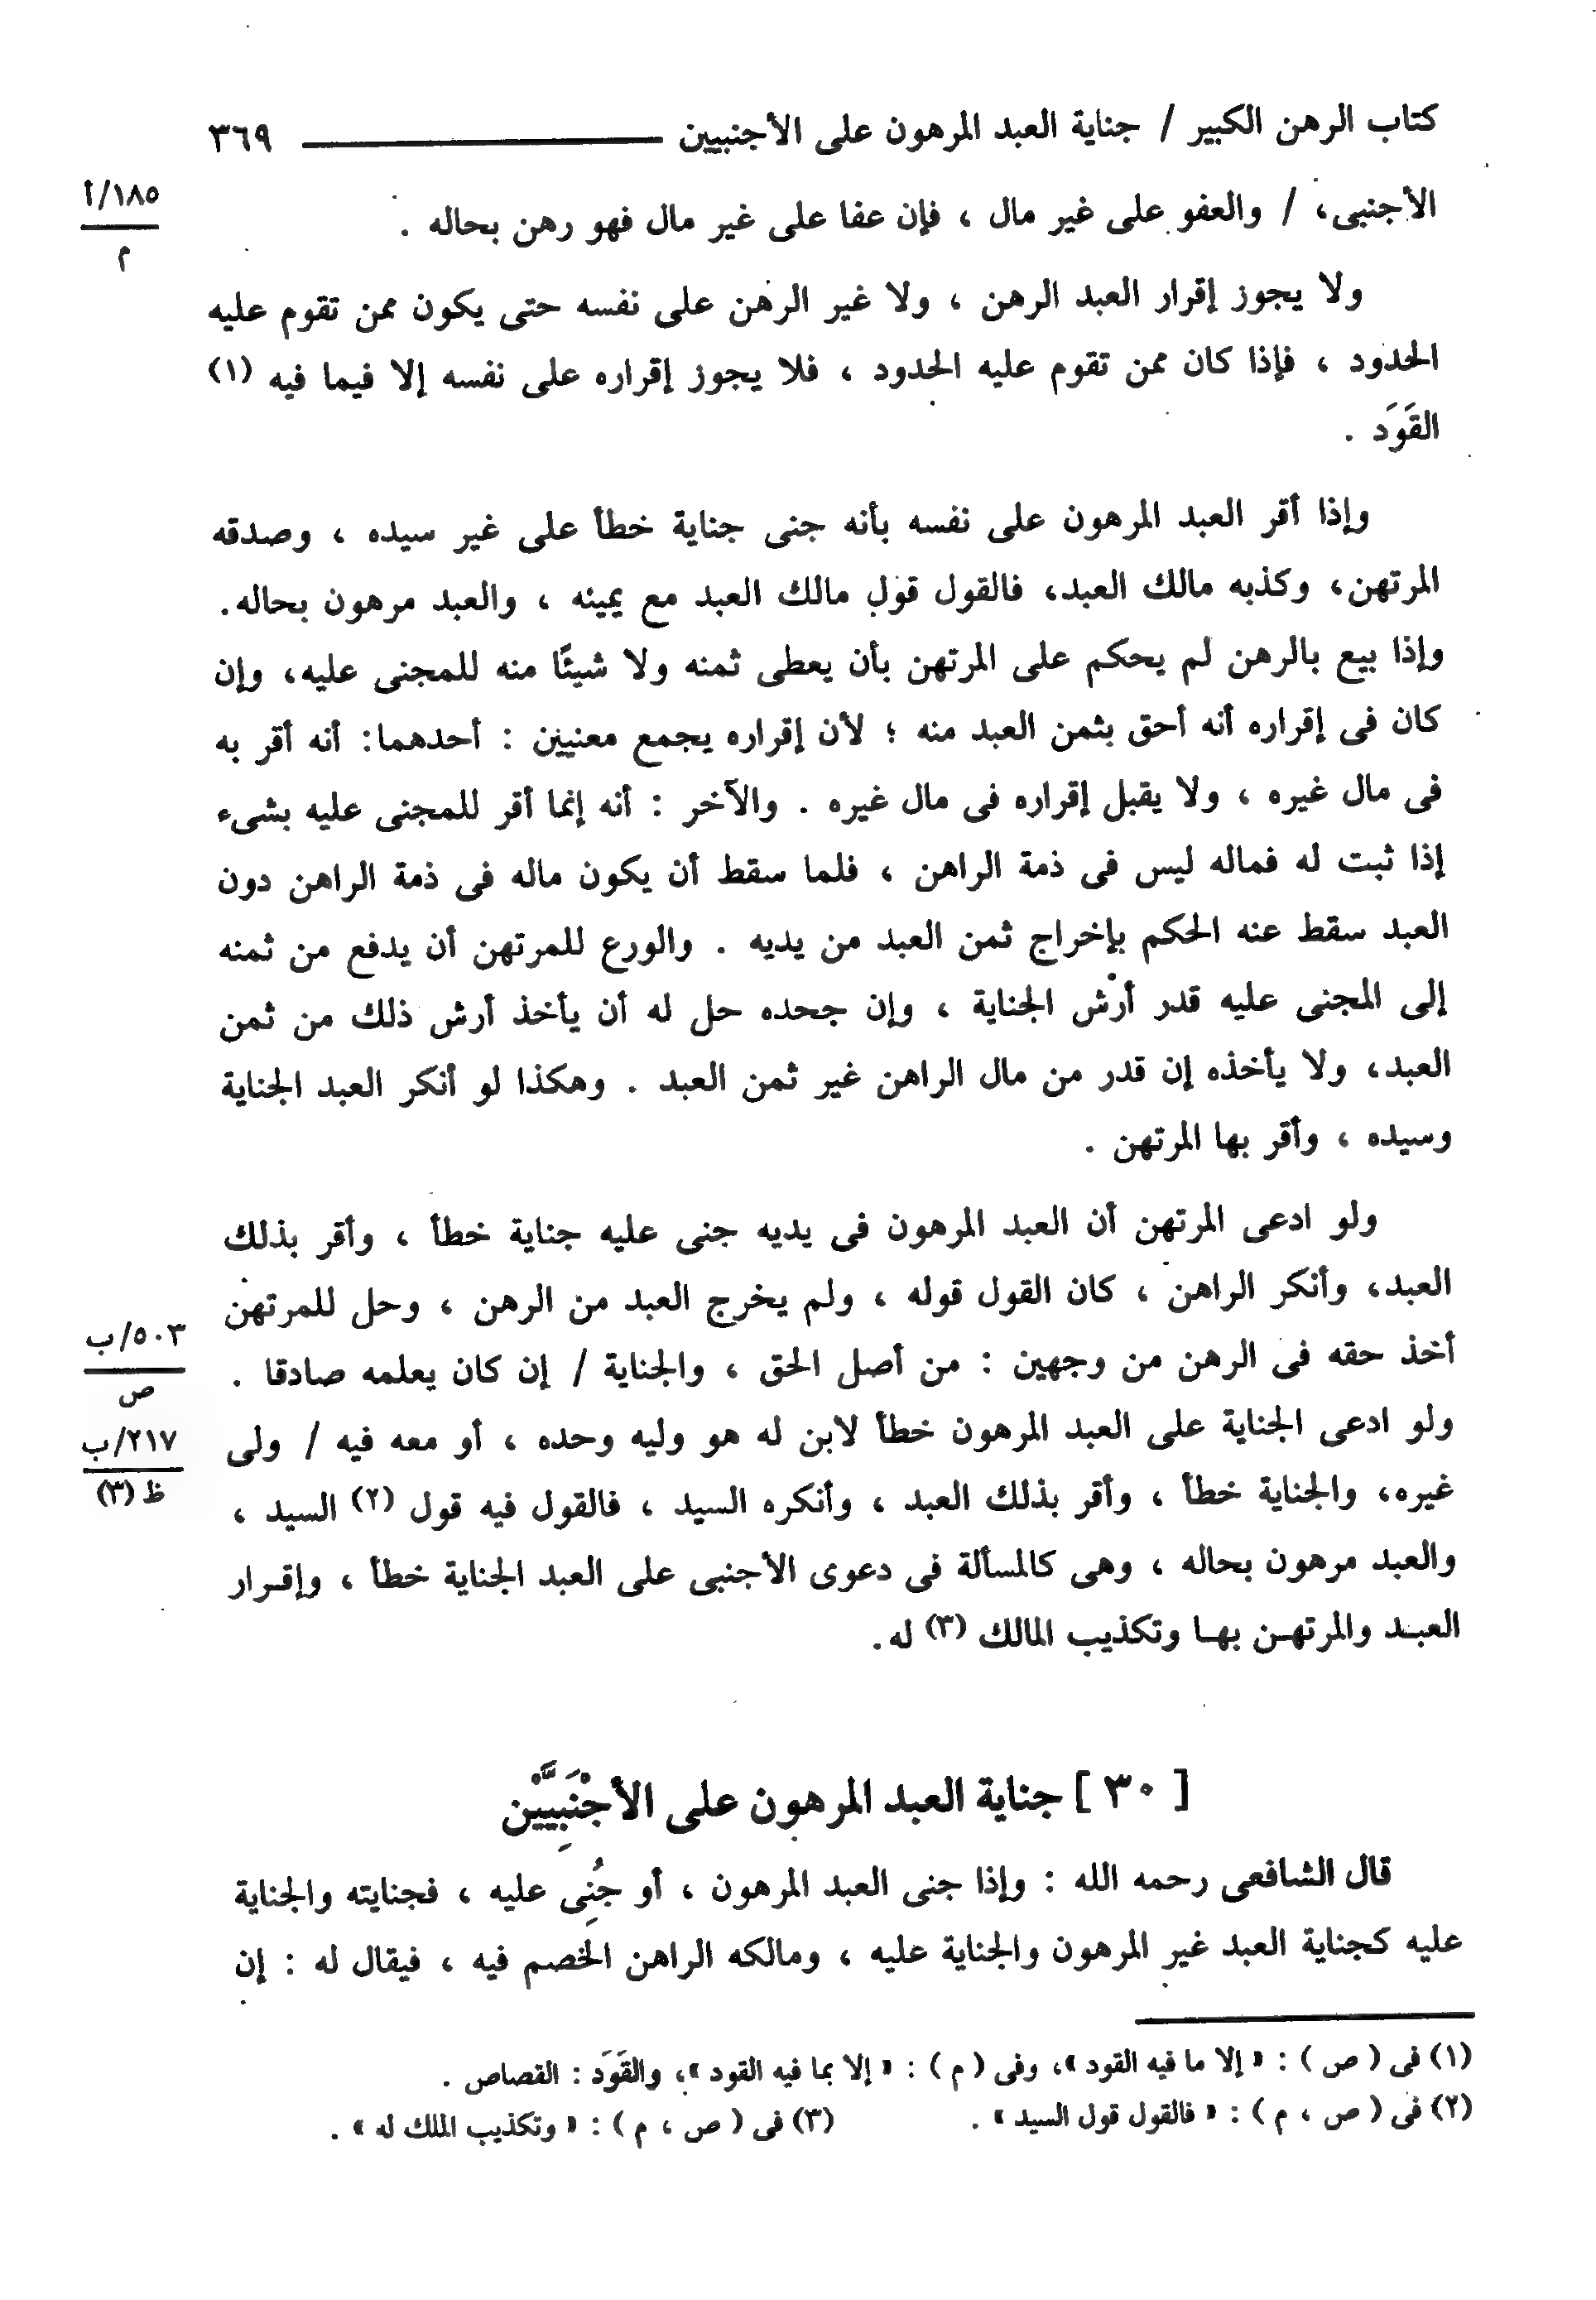 كتاب الرهن الكبير / جناية العبد المرهون على الأجنبيين ٣٦٩
الأجنبى، / والعفو على غير مال ، فإن عفا على غير مال فهو رهن بحاله .
١٨٥/أ
م
ولا يجوز إقرار العبد الرهن ، ولا غير الرهن على نفسه حتى يكون ممن تقوم عليه
الحدود ، فإذا كان ممن تقوم عليه الحدود ، فلا يجوز إقراره على نفسه إلا فيما فيه (١)
القَوَد .
وإذا أقر العبد المرهون على نفسه بأنه جنى جناية خطأ على غير سيده ، وصدقه
المرتهن، وكذبه مالك العبد، فالقول قول مالك العبد مع يمينه ، والعبد مرهون بحاله.
وإذا بيع بالرهن لم يحكم على المرتهن بأن يعطى ثمنه ولا شيئًا منه للمجنى عليه، وإن
كان فى إقراره أنه أحق بثمن العبد منه ؛ لأن إقراره يجمع معنيين : أحدهما: أنه أقر به
فى مال غيره ، ولا يقبل إقراره فى مال غيره . والآخر : أنه إنما أقر للمجنى عليه بشىء
إذا ثبت له فماله ليس فى ذمة الراهن ، فلما سقط أن يكون ماله فى ذمة الراهن دون
العبد سقط عنه الحكم بإخراج ثمن العبد من يديه . والورع للمرتهن أن يدفع من ثمنه
إلى المجنى عليه قدر أرش الجناية ، وإن جحده حل له أن يأخذ أرش ذلك من ثمن
العبد، ولا يأخذه إن قدر من مال الراهن غير ثمن العبد . وهكذا لو أنكر العبد الجناية
وسيده ، وأقر بها المرتهن .
ولو ادعى المرتهن أن العبد المرهون فى يديه جنى عليه جناية خطأ ، وأقر بذلك
العبد، وأنكر الراهن ، كان القول قوله ، ولم يخرج العبد من الرهن ، وحل للمرتهن
أخذ حقه فى الرهن من وجهين : من أصل الحق ، والجناية / إن كان يعلمه صادقا .
٥٠٣/ب
ص
ولو ادعى الجناية على العبد المرهون خطأ لابن له هو وليه وحده ، أو معه فيه / ولى
٢١٧/ب
ظ (٣)
غيره، والجناية خطأ ، وأقر بذلك العبد ، وأنكره السيد ، فالقول فيه قول (٢) السيد ،
والعبد مرهون بحاله ، وهى كالمسألة فى دعوى الأجنبى على العبد الجناية خطأ ، وإقرار
العبد والمرتهن بها وتكذيب المالك (٣) له.
[ ٣٠ ] جناية العبد المرهون على الأجْنَبِيَّيْن
قال الشافعى رحمه الله : وإذا جنى العبد المرهون ، أو جُنِى عليه ، فجنايته والجناية
عليه كجناية العبد غير المرهون والجناية عليه ، ومالكه الراهن الخصم فيه ، فيقال له : إن
(١) فى ( ص ) : « إلا ما فيه القود »، وفى ( م ) : « إلا بما فيه القود »، والقَوَد : القصاص .
(٢) فى ( ص ، م ) : « فالقول قول السيد » . (٣) فى ( ص ، م ) : « وتكذيب الملك له » .